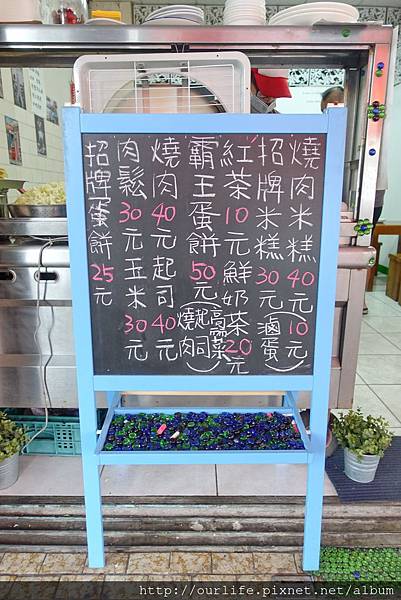 燒肉米糕40元
招牌米糕30元
(滷蛋10元)
紅茶10元鮮奶茶20元
霸王蛋餅50元
(高麗菜
起司
燒肉)
燒肉40元起司40元
肉鬆30元玉米30元
招牌蛋餅25元
http://ourlife.pixnet.net/album